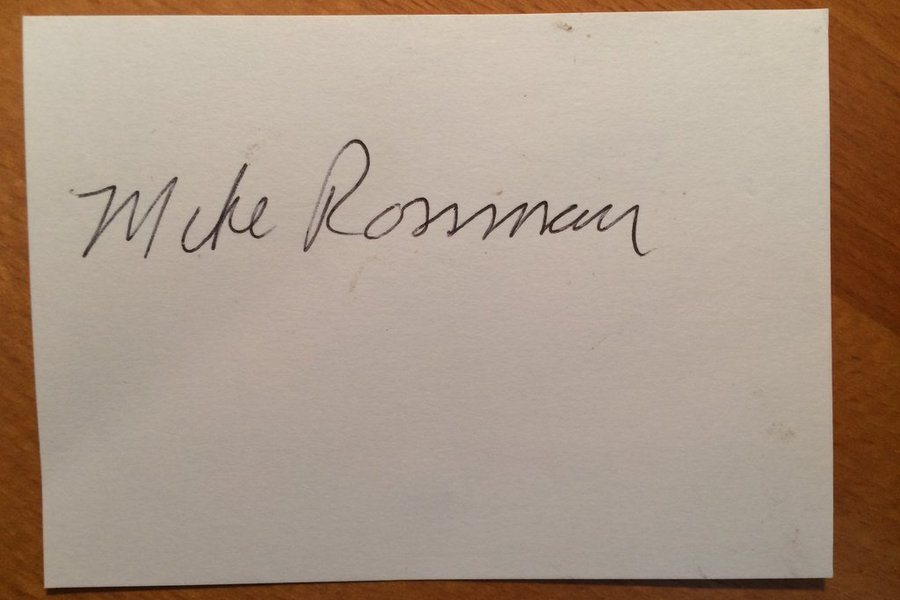 Mike Rossman